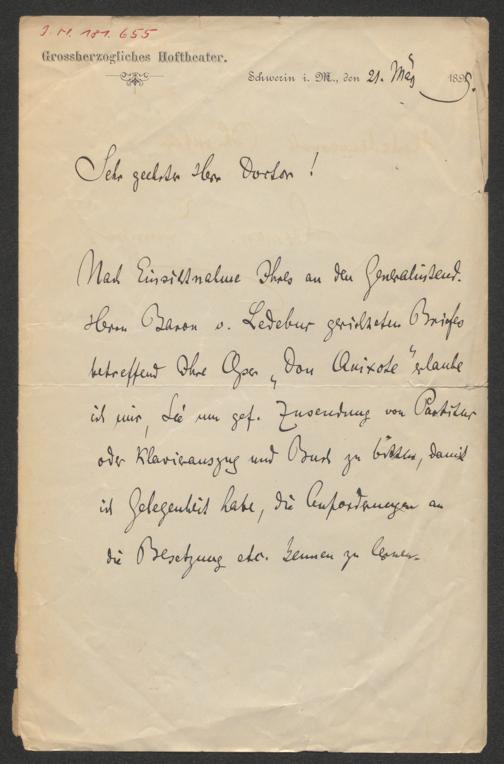 I. N. 181.655
Grossherzogliches Hoftheater.
Schwerin i. M., den 21. März 1898.
Sehr geehrter Herr Doctor!
Nach Einsichtnahme Ihres an den Generalintend.
Herrn Baron v. Ledebur gerichteten Briefes
betreffend Ihre Oper „Don Quixote" erlaube
ich mir, Sie um gef. Zusendung von Partitur
oder Klavierauszug und Buch zu bitten, damit
ich Gelegenheit habe, die Anforderungen an
die Besetzung etc. kennen zu lernen.